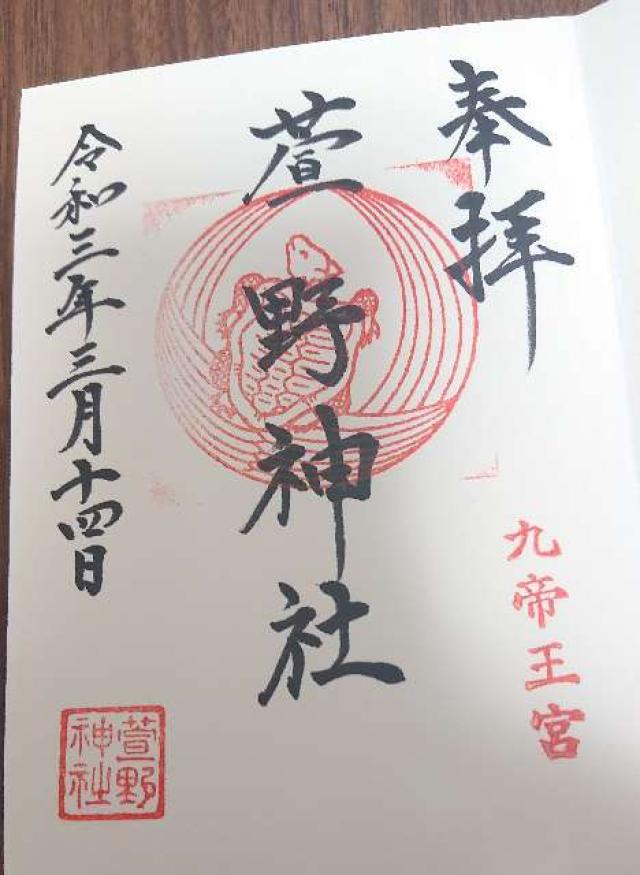 奉拝
九帝王宮
萱野神社
令和三年三月十四日
萱野
神社